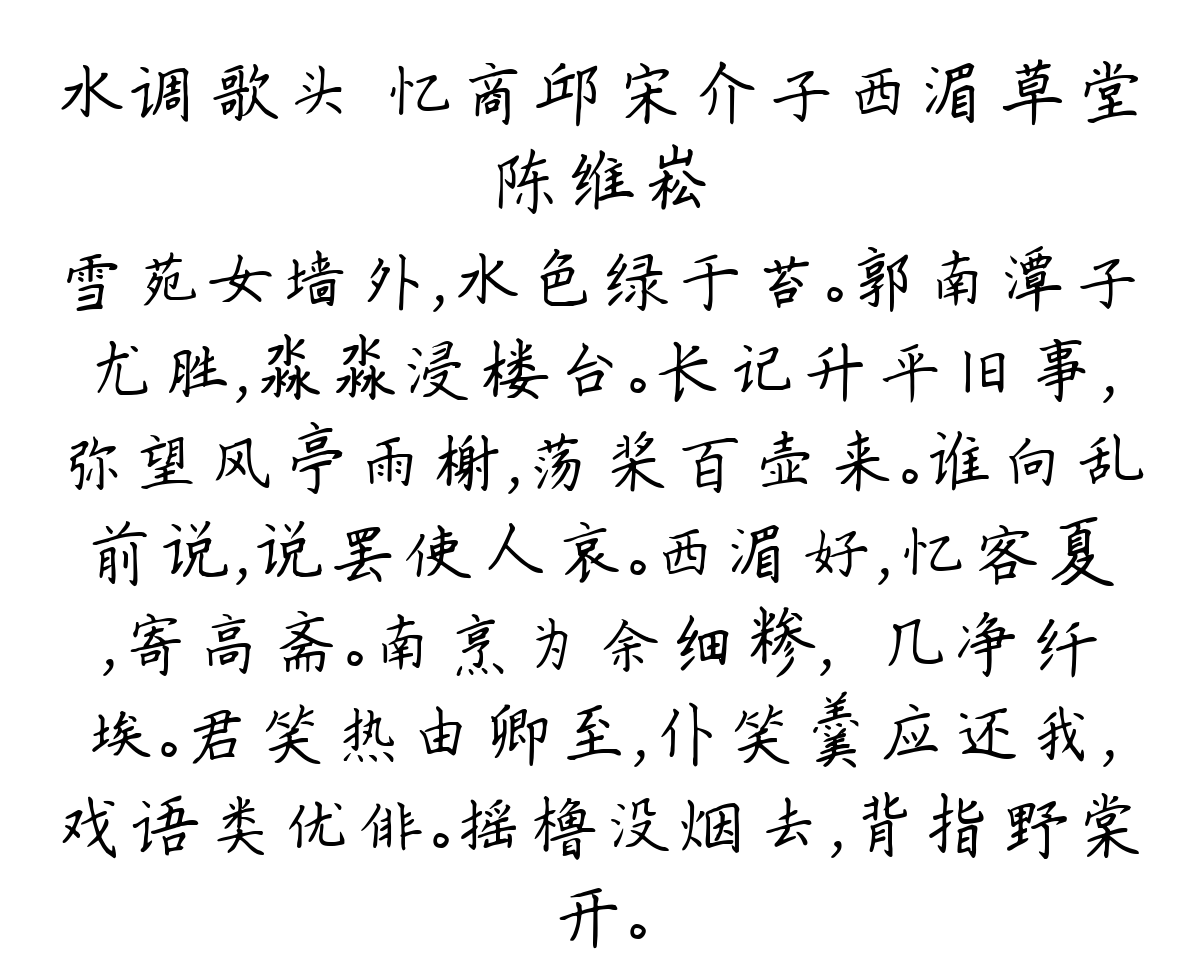 水调歌头 忆商邱宋介子西湄草堂
陈维崧
雪苑女墙外,水色绿于苔。郭南潭子
尤胜,淼淼浸楼台。长记升平旧事,
弥望风亭雨榭,荡桨百壶来。谁向乱
前说,说罢使人哀。西湄好,忆客夏
,寄高斋。南烹为余细糁, 几净纤
埃。君笑热由卿至,仆笑羹应还我,
戏语类优俳。摇橹没烟去,背指野棠
开。